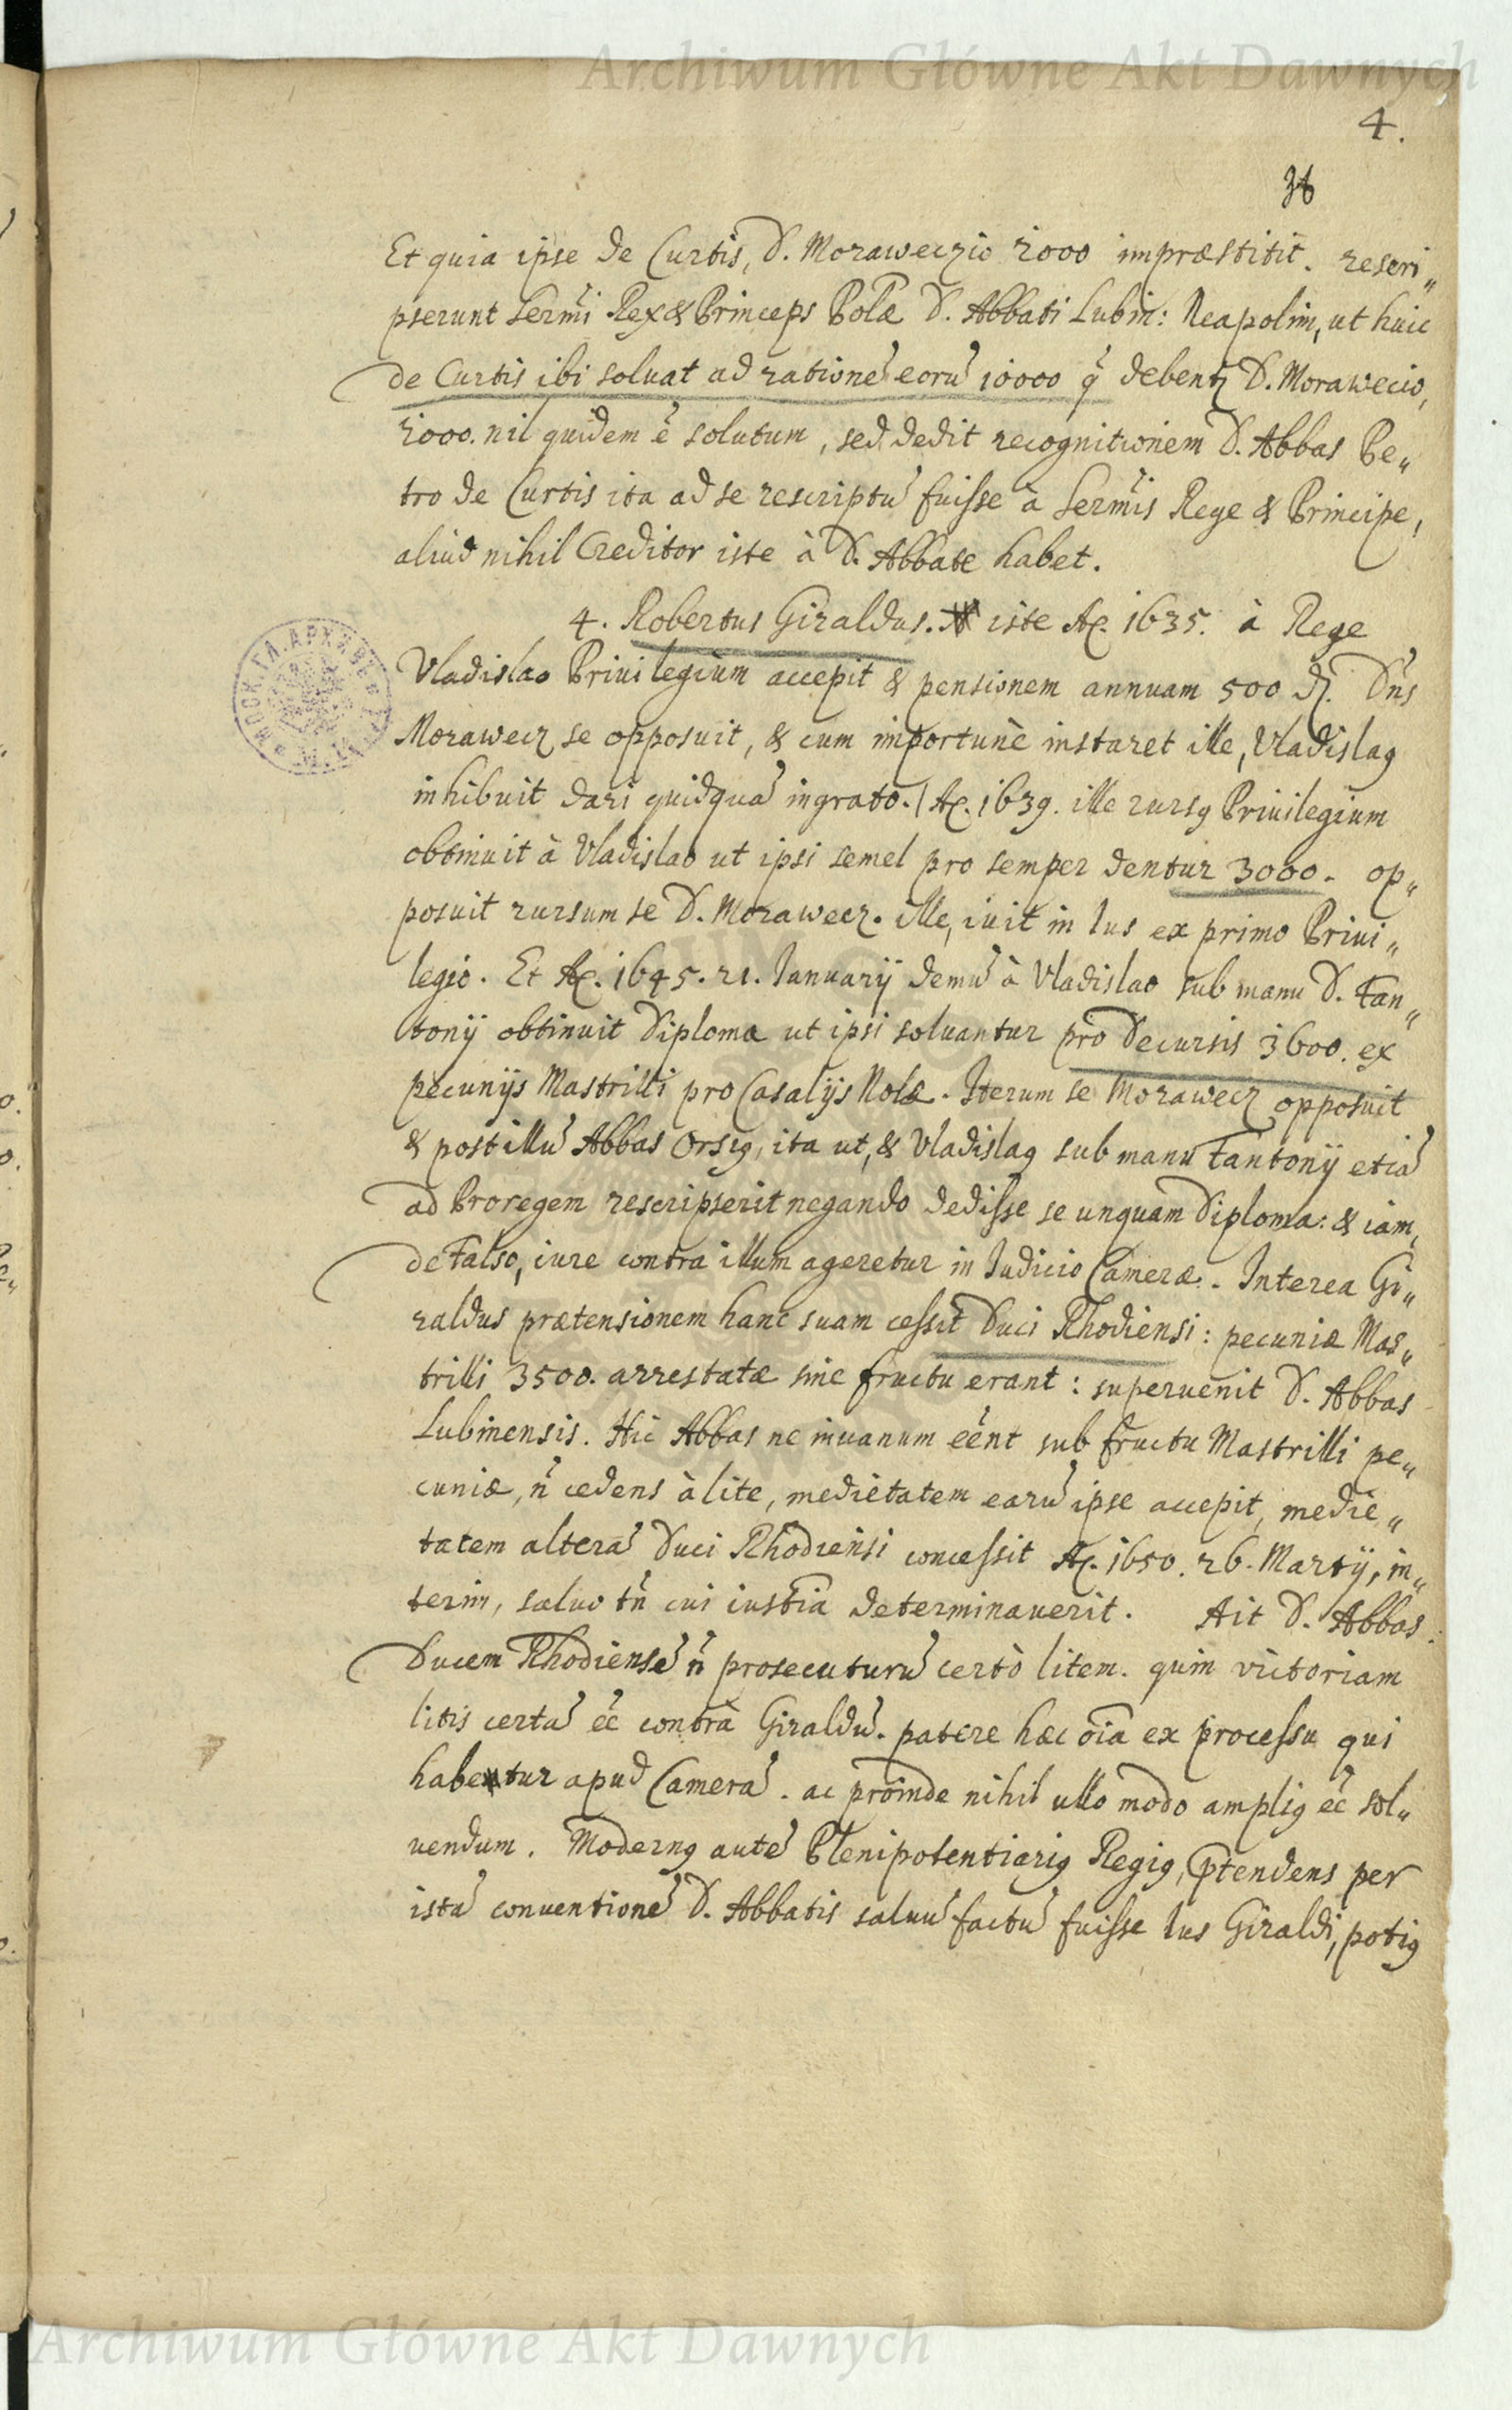 Archiwum Główne Akt Dawnych
4.
36
Et quia ipse de Curtis, D. Moraweczio 2000 impræstitit. rescri„
pserunt Sermi Rex & Princeps Polæ D. Abbati Lubin: Neapolim, ut huic
de Curtis ibi soluat ad rationē eorū 10000 q̃ debentr D. Morawecio,
2000. nil quidem ẽ solutum, sed dedit recognitionem D. Abbas Pe„
tro de Curtis ita ad se rescriptū fuisse à Sermis Rege & Principe,
aliud nihil Creditor iste à D. Abbate habet.
4. Robertus Giraldus. iste Ao. 1635. à Rege
Vladislao Priuilegium accepit & pensionem annuam 500 d. Dñs
Morawecz se opposuit, & cum importunè instaret ille, Vladislaq
inhibuit dari quidquā ingrato. / Ao. 1639. ille rursq Priuilegium
obtinuit à Vladislao ut ipsi semel pro semper dentur 3000. op„
posuit rursum se D. Morawecz. ille, iuit in Ius ex primo Priui„
legio. Et Ao. 1645. 21. Ianuarij demū à Vladislao sub manu D. Fan„
tonij obtinuit Diploma ut ipsi soluantur pro decursis 3600. ex
pecunijs Mastrilli pro Casalijs Nolæ. Iterum se Morawecz opposuit
& post illū Abbas Orsiq, ita ut, & Vladislaq sub manu Fantonij etiā
ad Proregem rescripserit negando dedisse se unquam Diploma: & iam,
de Falso, iure contra illum ageretur in Iudicio Cameræ. Interea Gi„
raldus prætensionem hanc suam cessit Duci Rhodiensi: pecuniæ Mas„
trilli 3500. arrestatæ sine fructu erant: superuenit D. Abbas
Lubinensis. Hic Abbas ne inuanum eẽnt sub fructu Mastrilli pe„
cuniæ, ñ cedens à lite, medietatem earū ipse accepit, medie„
tatem alterā Duci Rhodiensi concessit Ao. 1650. 26. Martij, in„
terim, saluo tñ cui iustia determinauerit. Ait D. Abbas
Ducem Rhodiensē ñ prosecuturū certò litem. quin victoriam
litis certā eẽ contrà Giraldū. patere hæc oĩa ex processu qui
habetur apud Camerā. ac proinde nihil ullo modo ampliq eẽ sol„
uendum. Modernq autē Plenipotentiariq Regiq, ptendens per
istā conuentionē D. Abbatis saluū factū fuisse Ius Giraldi, potiq
Archiwum Główne Akt Dawnych